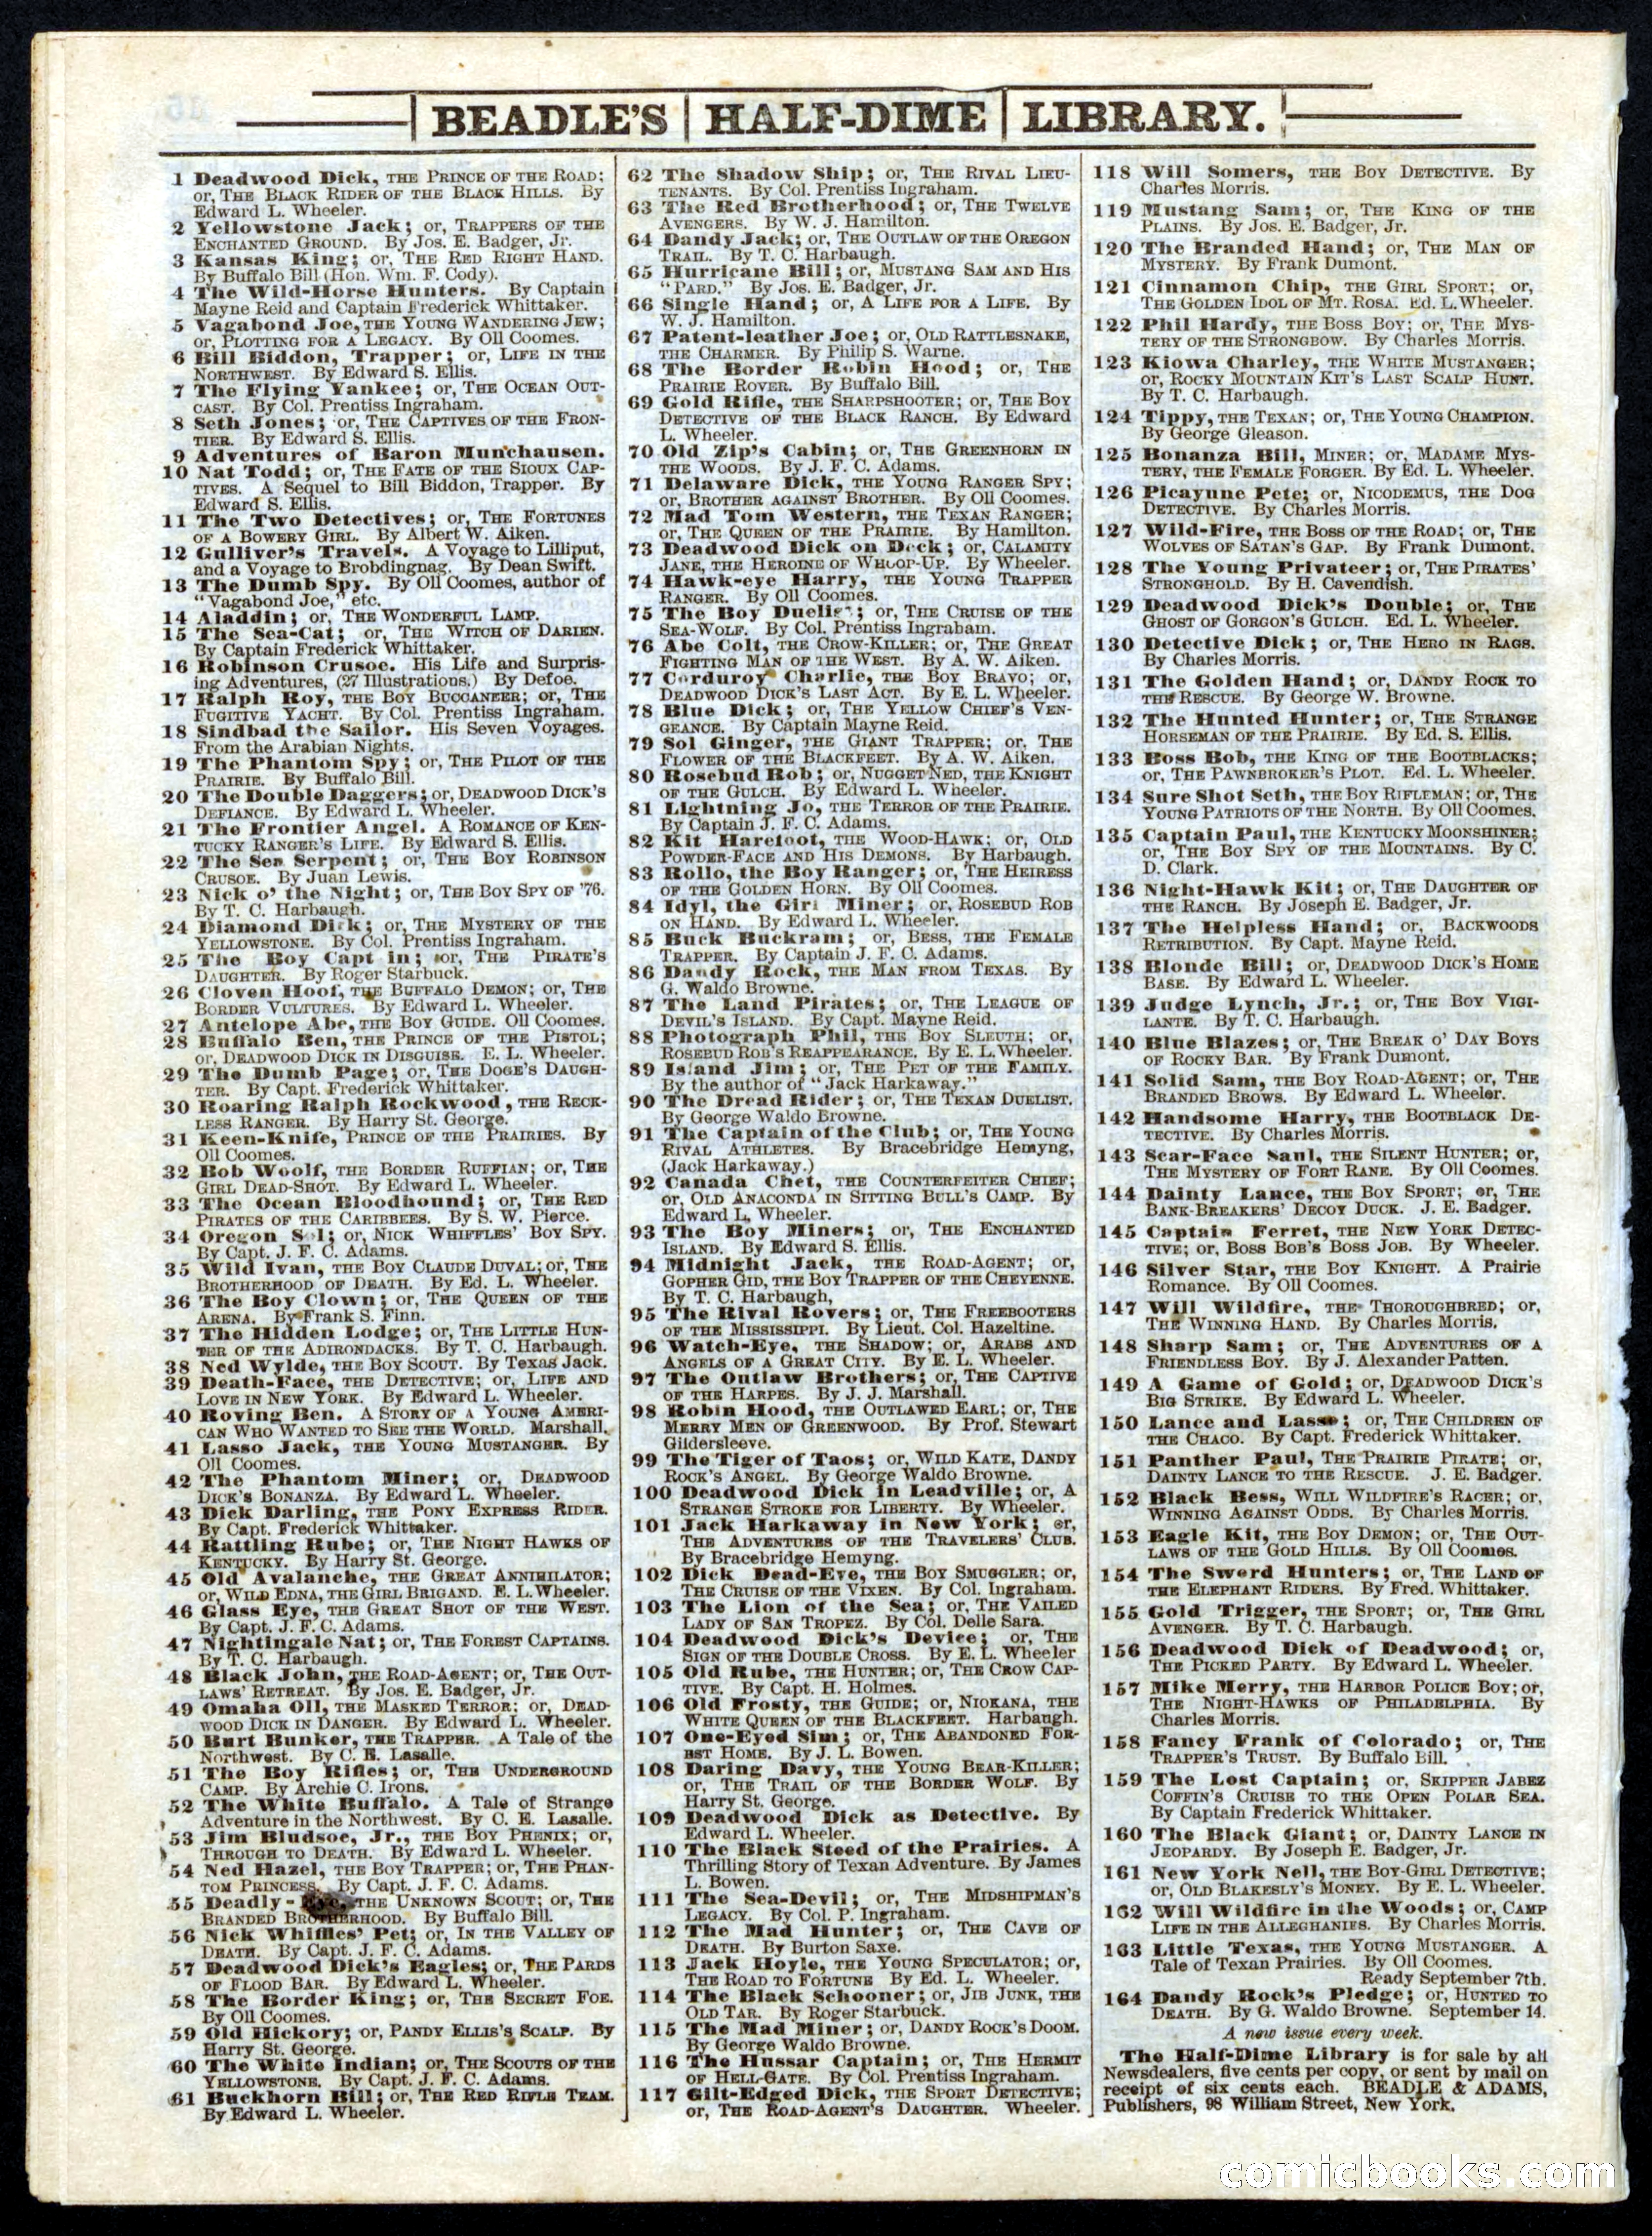 BEADLE'S HALF-DIME LIBRARY.
1 Deadwood Dick, THE PRINCE OF THE ROAD;
or, THE BLACK RIDER OF THE BLACK HILLS. By
Edward L. Wheeler.
2 Yellowstone Jack; or, TRAPPERS OF THE
ENCHANTED GROUND. By Jos. E. Badger, Jr.
3 Kansas King; or, THE RED RIGHT HAND.
By Buffalo Bill (Hon. Wm. F. Cody).
4 The Wild-Horse Hunters. By Captain
Mayne Reid and Captain Frederick Whittaker.
5 Vagabond Joe, THE YOUNG WANDERING JEW;
or, PLOTTING FOR A LEGACY. By Oll Coomes.
6 Bill Biddon, Trapper; or, LIFE IN THE
NORTHWEST. By Edward S. Ellis.
7 The Flying Yankee; or, THE OCEAN OUT-
CAST. By Col. Prentiss Ingraham.
8 Seth Jones; or, THE CAPTIVES OF THE FRON-
TIER. By Edward S. Ellis.
9 Adventures of Baron Munchausen.
10 Nat Todd; or, THE FATE OF THE SIOUX CAP-
TIVES. A Sequel to Bill Biddon, Trapper. By
Edward S. Ellis.
11 The Two Detectives; or, THE FORTUNES
OF A BOWERY GIRL. By Albert W. Aiken.
12 Gulliver's Travels. A Voyage to Lilliput,
and a Voyage to Brobdingnag. By Dean Swift.
13 The Dumb Spy. By Oll Coomes, author of
"Vagabond Joe," etc.
14 Aladdin; or, THE WONDERFUL LAMP.
15 The Sea-Cat; or, THE WITCH OF DARIEN.
By Captain Frederick Whittaker.
16 Robinson Crusoe. His Life and Surpris-
ing Adventures, (27 Illustrations.) By Defoe.
17 Ralph Roy, THE BOY BUCCANEER; or, THE
FUGITIVE YACHT. By Col. Prentiss Ingraham.
18 Sindbad the Sailor. His Seven Voyages.
From the Arabian Nights.
19 The Phantom Spy; or, THE PILOT OF THE
PRAIRIE. By Buffalo Bill.
20 The Double Daggers; or, DEADWOOD DICK'S
DEFIANCE. By Edward L. Wheeler.
21 The Frontier Angel. A ROMANCE OF KEN-
TUCKY RANGER'S LIFE. By Edward S. Ellis.
22 The Sea Serpent; or, THE BOY ROBINSON
CRUSOE. By Juan Lewis.
23 Nick o' the Night; or, THE BOY SPY OF '76.
By T. C. Harbaugh.
24 Diamond Dirk; or, THE MYSTERY OF THE
YELLOWSTONE. By Col. Prentiss Ingraham.
25 The Boy Capt in; or, THE PIRATE'S
DAUGHTER. By Roger Starbuck.
26 Cloven Hoof, THE BUFFALO DEMON; or, THE
BORDER VULTURES. By Edward L. Wheeler.
27 Antelope Abe, THE BOY GUIDE. Oll Coomes.
28 Buffalo Ben, THE PRINCE OF THE PISTOL;
or, DEADWOOD DICK IN DISGUISE. E. L. Wheeler.
29 The Dumb Page; or, THE DOGE'S DAUGH-
TER. By Capt. Frederick Whittaker.
30 Roaring Ralph Rockwood, THE RECK-
LESS RANGER. By Harry St. George.
31 Keen-Knife, PRINCE OF THE PRAIRIES. By
Oll Coomes.
32 Bob Woolf, THE BORDER RUFFIAN; or, THE
GIRL DEAD-SHOT. By Edward L. Wheeler.
33 The Ocean Bloodhound; or, THE RED
PIRATES OF THE CARIBBEES. By S. W. Pierce.
34 Oregon Sol; or, NICK WHIFFLES' BOY SPY.
By Capt. J. F. C. Adams.
35 Wild Ivan, THE BOY CLAUDE DUVAL; or, THE
BROTHERHOOD OF DEATH. By Ed. L. Wheeler.
36 The Boy Clown; or, THE QUEEN OF THE
ARENA. By Frank S. Finn.
37 The Hidden Lodge; or, THE LITTLE HUN-
TER OF THE ADIRONDACKS. By T. C. Harbaugh.
38 Ned Wylde, THE BOY SCOUT. By Texas Jack.
39 Death-Face, THE DETECTIVE; or, LIFE AND
LOVE IN NEW YORK. By Edward L. Wheeler.
40 Roving Ben. A STORY OF A YOUNG AMERI-
CAN WHO WANTED TO SEE THE WORLD. Marshall.
41 Lasso Jack, THE YOUNG MUSTANGER. By
Oll Coomes.
42 The Phantom Miner; or, DEADWOOD
DICK'S BONANZA. By Edward L. Wheeler.
43 Dick Darling, THE PONY EXPRESS RIDER.
By Capt. Frederick Whittaker.
44 Rattling Rube; or, THE NIGHT HAWKS OF
KENTUCKY. By Harry St. George.
45 Old Avalanche, THE GREAT ANNIHILATOR;
or, WILD EDNA, THE GIRL BRIGAND. E. L. Wheeler.
46 Glass Eye, THE GREAT SHOT OF THE WEST.
By Capt. J. F. C. Adams.
47 Nightingale Nat; or, THE FOREST CAPTAINS.
By T. C. Harbaugh.
48 Black John, THE ROAD-AGENT; or, THE OUT-
LAWS' RETREAT. By Jos. E. Badger, Jr.
49 Omaha Oll, THE MASKED TERROR; or, DEAD-
WOOD DICK IN DANGER. By Edward L. Wheeler.
50 Burt Bunker, THE TRAPPER. A Tale of the
Northwest. By C. E. Lasalle.
51 The Boy Rifles; or, THE UNDERGROUND
CAMP. By Archie C. Irons.
52 The White Buffalo. A Tale of Strange
Adventure in the Northwest. By C. E. Lasalle.
53 Jim Bludsoe, Jr., THE BOY PHENIX; or,
THROUGH TO DEATH. By Edward L. Wheeler.
54 Ned Hazel, THE BOY TRAPPER; or, THE PHAN-
TOM PRINCESS. By Capt. J. F. C. Adams.
55 Deadly-Eye, THE UNKNOWN SCOUT; or, THE
BRANDED BROTHERHOOD. By Buffalo Bill.
56 Nick Whiffles' Pet; or, IN THE VALLEY OF
DEATH. By Capt. J. F. C. Adams.
57 Deadwood Dick's Eagles; or, THE PARDS
OF FLOOD BAR. By Edward L. Wheeler.
58 The Border King; or, THE SECRET FOE.
By Oll Coomes.
59 Old Hickory; or, PANDY ELLIS'S SCALP. By
Harry St. George.
60 The White Indian; or, THE SCOUTS OF THE
YELLOWSTONE. By Capt. J. F. C. Adams.
61 Buckhorn Bill; or, THE RED RIFLE TEAM.
By Edward L. Wheeler.
62 The Shadow Ship; or, THE RIVAL LIEU-
TENANTS. By Col. Prentiss Ingraham.
63 The Red Brotherhood; or, THE TWELVE
AVENGERS. By W. J. Hamilton.
64 Dandy Jack; or, THE OUTLAW OF THE OREGON
TRAIL. By T. C. Harbaugh.
65 Hurricane Bill; or, MUSTANG SAM AND HIS
"PARD." By Jos. E. Badger, Jr.
66 Single Hand; or, A LIFE FOR A LIFE. By
W. J. Hamilton.
67 Patent-leather Joe; or, OLD RATTLESNAKE,
THE CHARMER. By Philip S. Warne.
68 The Border Robin Hood; or, THE
PRAIRIE ROVER. By Buffalo Bill.
69 Gold Rifle, THE SHARPSHOOTER; or, THE BOY
DETECTIVE OF THE BLACK RANCH. By Edward
L. Wheeler.
70 Old Zip's Cabin; or, THE GREENHORN IN
THE WOODS. By J. F. C. Adams.
71 Delaware Dick, THE YOUNG RANGER SPY;
or, BROTHER AGAINST BROTHER. By Oll Coomes.
72 Mad Tom Western, THE TEXAN RANGER;
or, THE QUEEN OF THE PRAIRIE. By Hamilton.
73 Deadwood Dick on Deck; or, CALAMITY
JANE, THE HEROINE OF WHOOP-UP. By Wheeler.
74 Hawk-eye Harry, THE YOUNG TRAPPER
RANGER. By Oll Coomes.
75 The Boy Duelist; or, THE CRUISE OF THE
SEA-WOLF. By Col. Prentiss Ingraham.
76 Abe Colt, THE CROW-KILLER; or, THE GREAT
FIGHTING MAN OF THE WEST. By A. W. Aiken.
77 Corduroy Charlie, THE BOY BRAVO; or,
DEADWOOD DICK'S LAST ACT. By E. L. Wheeler.
78 Blue Dick; or, THE YELLOW CHIEF'S VEN-
GEANCE. By Captain Mayne Reid.
79 Sol Ginger, THE GIANT TRAPPER; or, THE
FLOWER OF THE BLACKFEET. By A. W. Aiken.
80 Rosebud Rob; or, NUGGET NED, THE KNIGHT
OF THE GULCH. By Edward L. Wheeler.
81 Lightning Jo, THE TERROR OF THE PRAIRIE.
By Captain J. F. C. Adams.
82 Kit Harefoot, THE WOOD-HAWK; or, OLD
POWDER-FACE AND HIS DEMONS. By Harbaugh.
83 Rollo, the Boy Ranger; or, THE HEIRESS
OF THE GOLDEN HORN. By Oll Coomes.
84 Idyl, the Girl Miner; or, ROSEBUD ROB
ON HAND. By Edward L. Wheeler.
85 Buck Buckram; or, BESS, THE FEMALE
TRAPPER. By Captain J. F. C. Adams.
86 Dandy Rock, THE MAN FROM TEXAS. By
G. Waldo Browne.
87 The Land Pirates; or, THE LEAGUE OF
DEVIL'S ISLAND. By Capt. Mayne Reid.
88 Photograph Phil, THE BOY SLEUTH; or,
ROSEBUD ROB'S REAPPEARANCE. By E. L. Wheeler.
89 Island Jim; or, THE PET OF THE FAMILY.
By the author of "Jack Harkaway."
90 The Dread Rider; or, THE TEXAN DUELIST.
By George Waldo Browne.
91 The Captain of the Club; or, THE YOUNG
RIVAL ATHLETES. By Bracebridge Hemyng,
(Jack Harkaway.)
92 Canada Chet, THE COUNTERFEITER CHIEF;
or, OLD ANACONDA IN SITTING BULL'S CAMP. By
Edward L. Wheeler.
93 The Boy Miners; or, THE ENCHANTED
ISLAND. By Edward S. Ellis.
94 Midnight Jack, THE ROAD-AGENT; or,
GOPHER GID, THE BOY TRAPPER OF THE CHEYENNE.
By T. C. Harbaugh,
95 The Rival Rovers; or, THE FREEBOOTERS
OF THE MISSISSIPPI. By Lieut. Col. Hazeltine.
96 Watch-Eye, THE SHADOW; or, ARABS AND
ANGELS OF A GREAT CITY. By E. L. Wheeler.
97 The Outlaw Brothers; or, THE CAPTIVE
OF THE HARPES. By J. J. Marshall.
98 Robin Hood, THE OUTLAWED EARL; or, THE
MERRY MEN OF GREENWOOD. By Prof. Stewart
Gildersleeve.
99 The Tiger of Taos; or, WILD KATE, DANDY
ROCK'S ANGEL. By George Waldo Browne.
100 Deadwood Dick in Leadville; or, A
STRANGE STROKE FOR LIBERTY. By Wheeler.
101 Jack Harkaway in New York; or,
THE ADVENTURES OF THE TRAVELERS' CLUB.
By Bracebridge Hemyng.
102 Dick Dead-Eye, THE BOY SMUGGLER; or,
THE CRUISE OF THE VIXEN. By Col. Ingraham.
103 The Lion of the Sea; or, THE VAILED
LADY OF SAN TROPEZ. By Col. Delle Sara.
104 Deadwood Dick's Device; or, THE
SIGN OF THE DOUBLE CROSS. By E. L. Wheeler
105 Old Rube, THE HUNTER; or, THE CROW CAP-
TIVE. By Capt. H. Holmes.
106 Old Frosty, THE GUIDE; or, NIOKANA, THE
WHITE QUEEN OF THE BLACKFEET. Harbaugh.
107 One-Eyed Sim; or, THE ABANDONED FOR-
EST HOME. By J. L. Bowen.
108 Daring Davy, THE YOUNG BEAR-KILLER;
or, THE TRAIL OF THE BORDER WOLF. By
Harry St. George.
109 Deadwood Dick as Detective. By
Edward L. Wheeler.
110 The Black Steed of the Prairies. A
Thrilling Story of Texan Adventure. By James
L. Bowen.
111 The Sea-Devil; or, THE MIDSHIPMAN'S
LEGACY. By Col. P. Ingraham.
112 The Mad Hunter; or, THE CAVE OF
DEATH. By Burton Saxe.
113 Jack Hoyle, THE YOUNG SPECULATOR; or,
THE ROAD TO FORTUNE By Ed. L. Wheeler.
114 The Black Schooner; or, JIB JUNK, THE
OLD TAR. By Roger Starbuck.
115 The Mad Miner; or, DANDY ROCK'S DOOM.
By George Waldo Browne.
116 The Hussar Captain; or, THE HERMIT
OF HELL-GATE. By Col. Prentiss Ingraham.
117 Gilt-Edged Dick, THE SPORT DETECTIVE;
or, THE ROAD-AGENT'S DAUGHTER. Wheeler.
118 Will Somers, THE BOY DETECTIVE. By
Charles Morris.
119 Mustang Sam; or, THE KING OF THE
PLAINS. By Jos. E. Badger, Jr.
120 The Branded Hand; or, THE MAN OF
MYSTERY. By Frank Dumont.
121 Cinnamon Chip, THE GIRL SPORT; or,
THE GOLDEN IDOL OF MT. ROSA. Ed. L. Wheeler.
122 Phil Hardy, THE BOSS BOY; or, THE MYS-
TERY OF THE STRONGBOW. By Charles Morris.
123 Kiowa Charley, THE WHITE MUSTANGER;
or, ROCKY MOUNTAIN KIT'S LAST SCALP HUNT.
By T. C. Harbaugh.
124 Tippy, THE TEXAN; or, THE YOUNG CHAMPION.
By George Gleason.
125 Bonanza Bill, MINER; or, MADAME MYS-
TERY, THE FEMALE FORGER. By Ed. L. Wheeler.
126 Picayune Pete; or, NICODEMUS, THE DOG
DETECTIVE. By Charles Morris.
127 Wild-Fire, THE BOSS OF THE ROAD; or, THE
WOLVES OF SATAN'S GAP. By Frank Dumont.
128 The Young Privateer; or, THE PIRATES'
STRONGHOLD. By H. Cavendish.
129 Deadwood Dick's Double; or, THE
GHOST OF GORGON'S GULCH. Ed. L. Wheeler.
130 Detective Dick; or, THE HERO IN RAGS.
By Charles Morris.
131 The Golden Hand; or, DANDY ROCK TO
THE RESCUE. By George W. Browne.
132 The Hunted Hunter; or, THE STRANGE
HORSEMAN OF THE PRAIRIE. By Ed. S. Ellis.
133 Boss Bob, THE KING OF THE BOOTBLACKS;
or, THE PAWNBROKER'S PLOT. Ed. L. Wheeler.
134 Sure Shot Seth, THE BOY RIFLEMAN; or, THE
YOUNG PATRIOTS OF THE NORTH. By Oll Coomes.
135 Captain Paul, THE KENTUCKY MOONSHINER;
or, THE BOY SPY OF THE MOUNTAINS. By C.
D. Clark.
136 Night-Hawk Kit; or, THE DAUGHTER OF
THE RANCH. By Joseph E. Badger, Jr.
137 The Helpless Hand; or, BACKWOODS
RETRIBUTION. By Capt. Mayne Reid.
138 Blonde Bill; or, DEADWOOD DICK'S HOME
BASE. By Edward L. Wheeler.
139 Judge Lynch, Jr.; or, THE BOY VIGI-
LANTE. By T. C. Harbaugh.
140 Blue Blazes; or, THE BREAK O' DAY BOYS
OF ROCKY BAR. By Frank Dumont.
141 Solid Sam, THE BOY ROAD-AGENT; or, THE
BRANDED BROWS. By Edward L. Wheeler.
142 Handsome Harry, THE BOOTBLACK DE-
TECTIVE. By Charles Morris.
143 Scar-Face Saul, THE SILENT HUNTER; or,
THE MYSTERY OF FORT RANE. By Oll Coomes.
144 Dainty Lance, THE BOY SPORT; or, THE
BANK-BREAKERS' DECOY DUCK. J. E. Badger.
145 Captain Ferret, THE NEW YORK DETEC-
TIVE; or, BOSS BOB'S BOSS JOB. By Wheeler.
146 Silver Star, THE BOY KNIGHT. A Prairie
Romance. By Oll Coomes.
147 Will Wildfire, THE THOROUGHBRED; or,
THE WINNING HAND. By Charles Morris.
148 Sharp Sam; or, THE ADVENTURES OF A
FRIENDLESS BOY. By J. Alexander Patten.
149 A Game of Gold; or, DEADWOOD DICK'S
BIG STRIKE. By Edward L. Wheeler.
150 Lance and Lasso; or, THE CHILDREN OF
THE CHACO. By Capt. Frederick Whittaker.
151 Panther Paul, THE PRAIRIE PIRATE; or,
DAINTY LANCE TO THE RESCUE. J. E. Badger.
152 Black Bess, WILL WILDFIRE'S RACER; or,
WINNING AGAINST ODDS. By Charles Morris.
153 Eagle Kit, THE BOY DEMON; or, THE OUT-
LAWS OF THE GOLD HILLS. By Oll Coomes.
154 The Sword Hunters; or, THE LAND OF
THE ELEPHANT RIDERS. By Fred. Whittaker.
155 Gold Trigger, THE SPORT; or, THE GIRL
AVENGER. By T. C. Harbaugh.
156 Deadwood Dick of Deadwood; or,
THE PICKED PARTY. By Edward L. Wheeler.
157 Mike Merry, THE HARBOR POLICE BOY; or,
THE NIGHT-HAWKS OF PHILADELPHIA. By
Charles Morris.
158 Fancy Frank of Colorado; or, THE
TRAPPER'S TRUST. By Buffalo Bill.
159 The Lost Captain; or, SKIPPER JABEZ
COFFIN'S CRUISE TO THE OPEN POLAR SEA.
By Captain Frederick Whittaker.
160 The Black Giant; or, DAINTY LANCE IN
JEOPARDY. By Joseph E. Badger, Jr.
161 New York Nell, THE BOY-GIRL DETECTIVE;
or, OLD BLAKESLY'S MONEY. By E. L. Wheeler.
162 Will Wildfire in the Woods; or, CAMP
LIFE IN THE ALLEGHANIES. By Charles Morris.
163 Little Texas, THE YOUNG MUSTANGER. A
Tale of Texan Prairies. By Oll Coomes.
Ready September 7th.
164 Dandy Rock's Pledge; or, HUNTED TO
DEATH. By G. Waldo Browne. September 14.
A new issue every week.
The Half-Dime Library is for sale by all
Newsdealers, five cents per copy, or sent by mail on
receipt of six cents each. BEADLE & ADAMS,
Publishers, 98 William Street, New York.
comicbooks.com